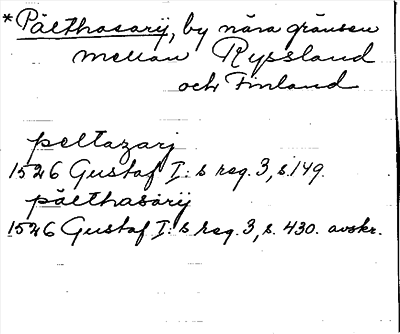 *Pälthasarij, by nära gränsen
mellan Ryssland
och Finland
peltazarj
1526 Gustaf I:s reg. 3, s. 149.
pälthasarij
1526 Gustaf I:s reg. 3, s. 430. avskr.